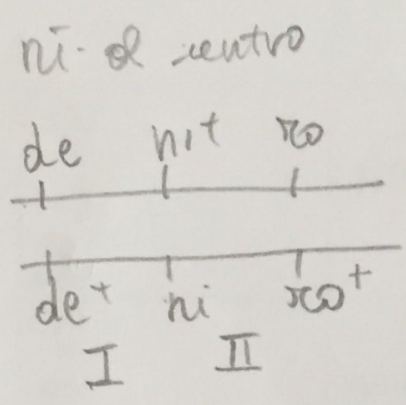 ni · al centro
de ni+ ro
de+ ni ro+
I II